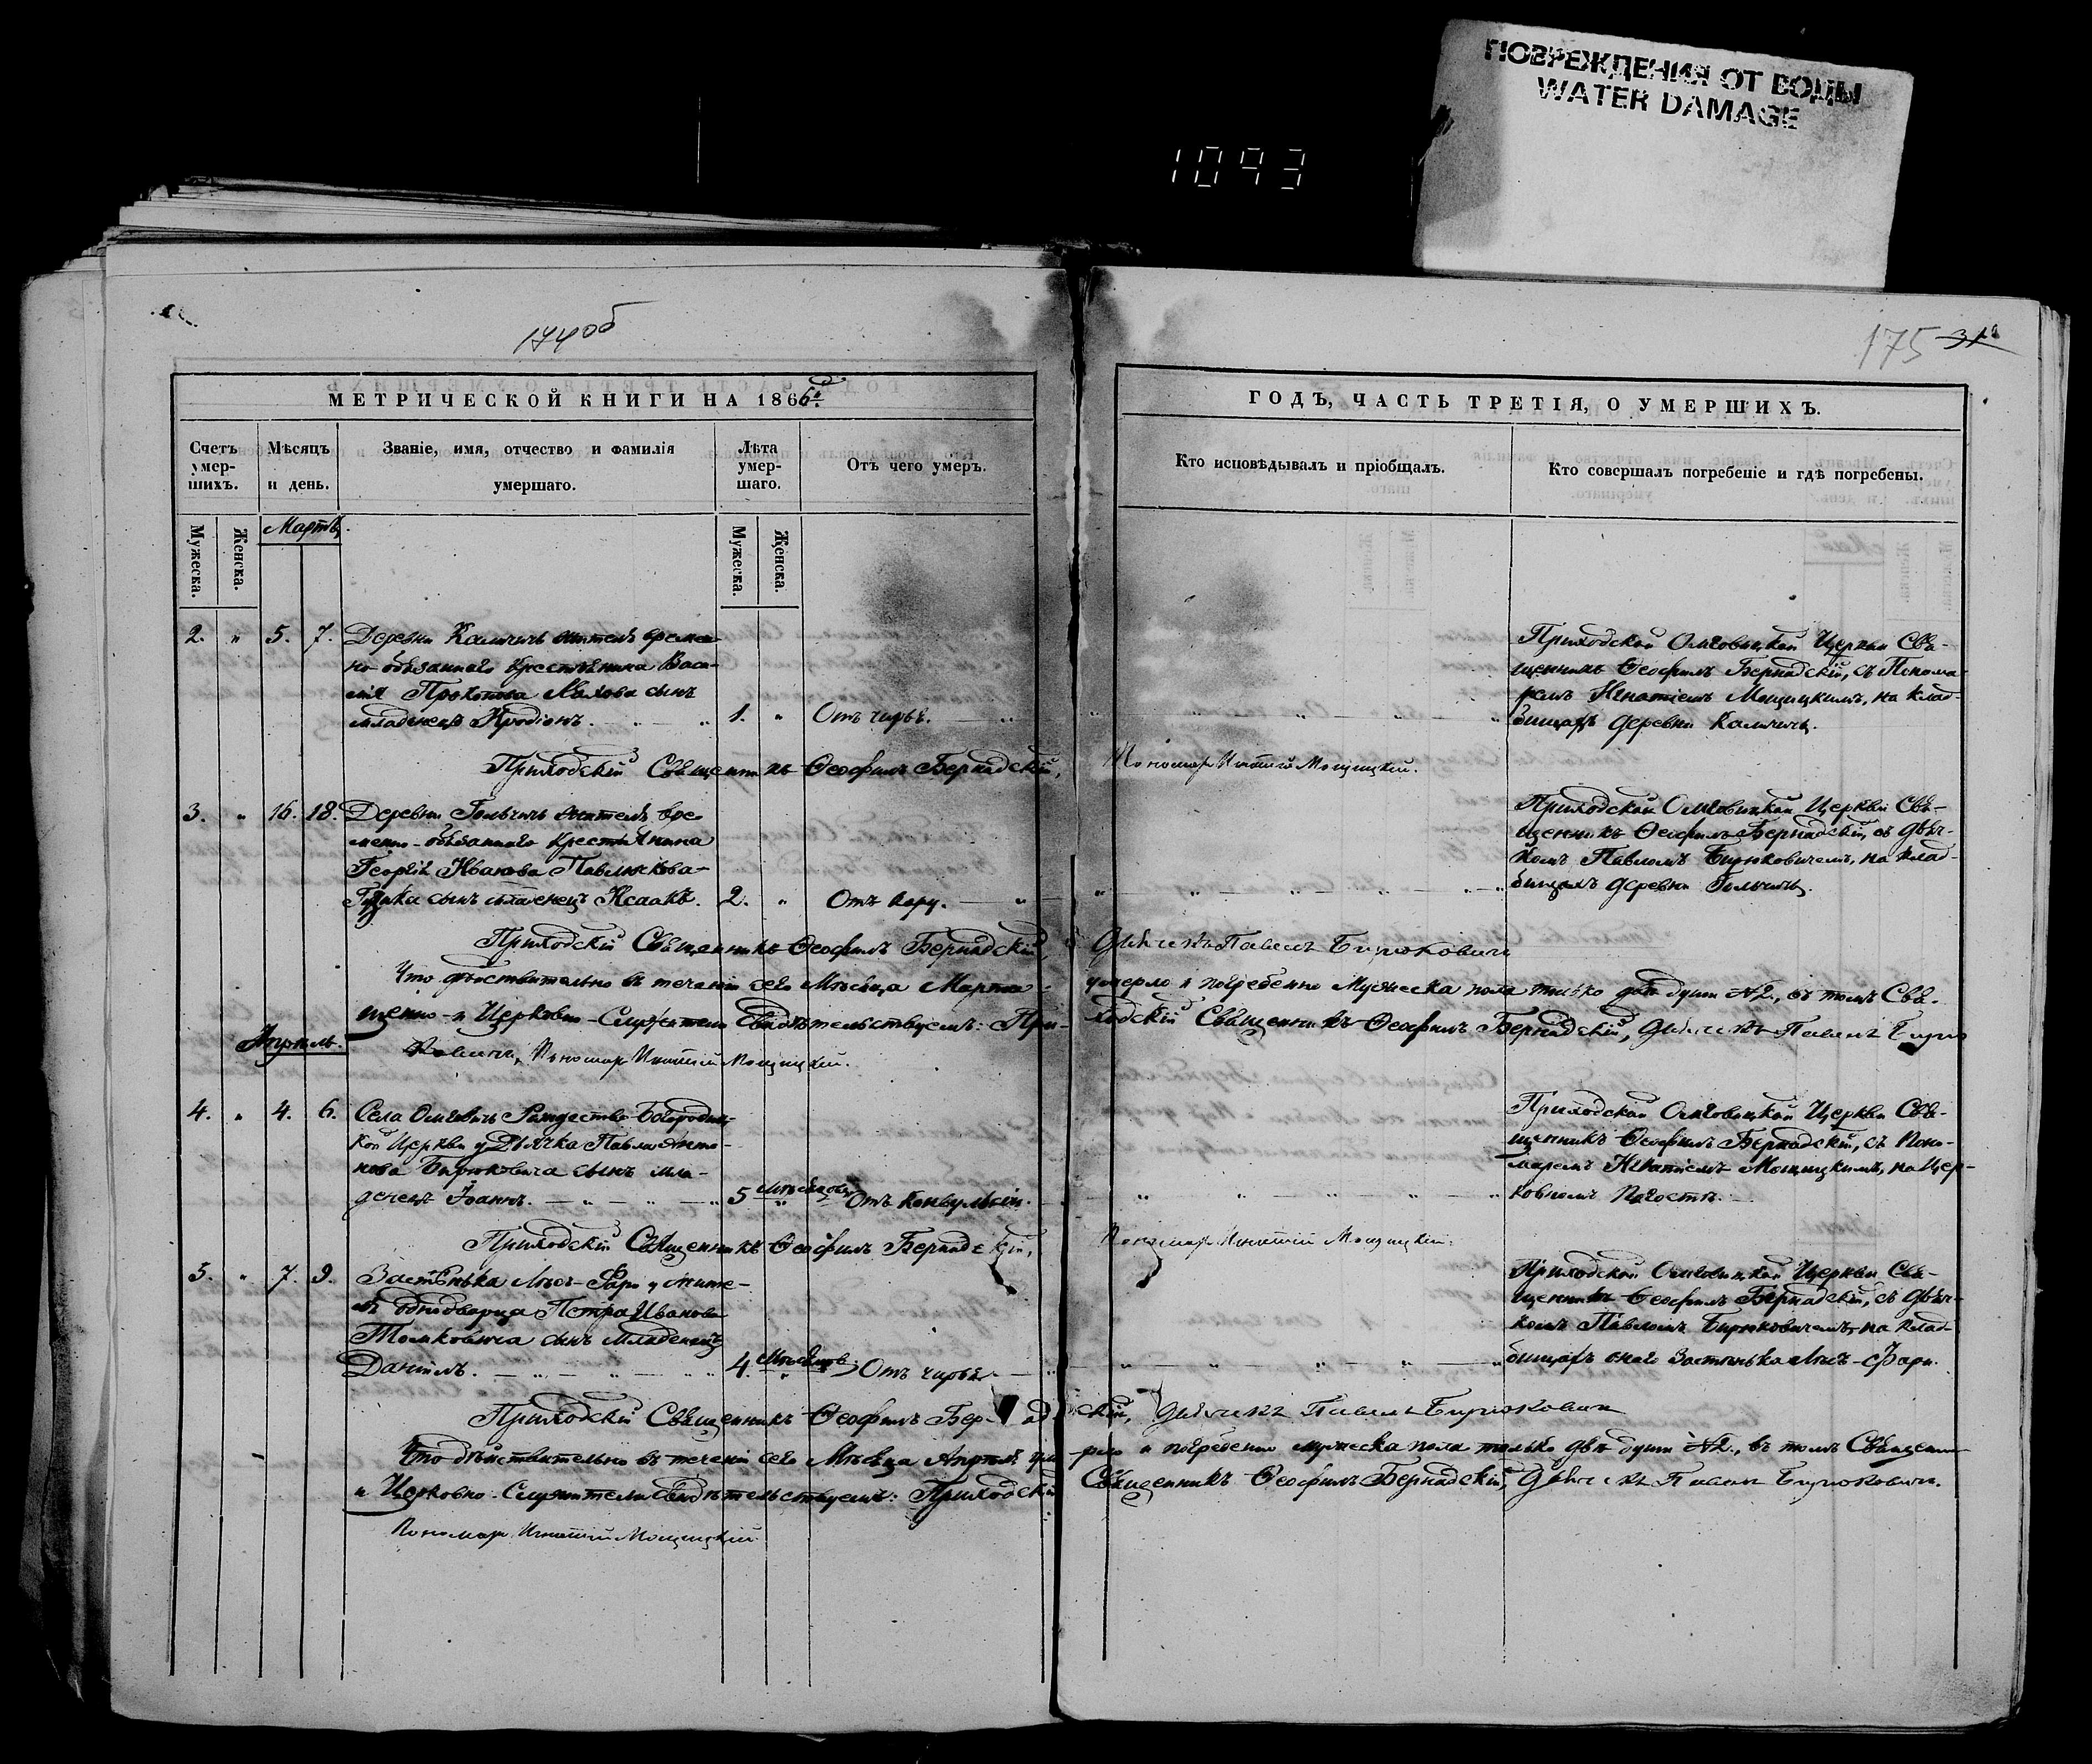 ПОВРЕЖДЕНИЯ ОТ ВОДЫ
WATER DAMAGE
1093
174об
175
МЕТРИЧЕСКОЙ КНИГИ НА 1866й.
ГОДЪ, ЧАСТЬ ТРЕТІЯ, О УМЕРШИХЪ.
Счетъ умер-шихъ.
Мѣсяцъ и день.
Званіе, имя, отчество и фамилія умершаго.
Лѣта умер-шаго.
Отъ чего умеръ.
Кто исповѣдывалъ и пріобщалъ.
Кто совершалъ погребеніе и гдѣ погребены.
Мужеска.
Женска.
Мартъ.
Мужеска.
Женска.
2. " 5. 7. Деревни жителя времен-
но-обязаннаго крестьянина Васи-
лія Прокопова сынъ
младенецъ Иродіонъ. 1. "
Приходской Церкви Свя-
щенникъ Ѳеофилъ Бернадскій, съ Понома-
ремъ Игнатіемъ Мощицкимъ, на клад-
бищахъ деревни
Приходскій Священникъ Ѳеофилъ Бернадскій,
Пономар Игнатій Мощицкій.
3. " 16. 18. Деревни жителя вре-
менно-обязаннаго крестьянина
Георгія Иванова
сынъ младенецъ Исаакъ. 2. " Отъ кору.
Приходской Церкви Свя-
щенникъ Ѳеофилъ Бернадскій, съ Дьяч-
комъ Павломъ Бирюковичемъ, на клад-
бищахъ деревни
Приходскій Священникъ Ѳеофилъ Бернадскій
Дьячекъ Павелъ Бирюковичъ
Что дѣйствительно въ теченіи сего Мѣсяца Марта
умерло и погребенно Мужеска пола только двѣ души №2., въ томъ Свя-
щенно- и Церковно-Служители Свидѣтельствуемъ: При-
ходскій Священникъ Ѳеофилъ Бернадскій, Дьячекъ Павелъ Бирю
ковичъ, Пономар Игнатій Мощицкій.
Апрѣль.
4. " 4. 6. Села Рождество-Богородиц-
кой Церкви у Дьячка Павла Анто-
нова Бирюковича сынъ мла-
денецъ Іоаннъ. 5 Мѣсяцовъ Отъ конвульсіи.
Приходской Церкви Свя-
щенникъ Ѳеофилъ Бернадскій, съ Поно-
маремъ Игнатіемъ Мощицкимъ, на Цер-
ковномъ Погостѣ.
Приходскій Священникъ Ѳеофилъ Бернадскій,
Пономар Игнатій Мощицкій.
5. " 7. 9. Застѣнька жите-
ля однодворца Петра Иванова
сынъ Младенецъ
Даніилъ. 4. Мѣсяцов
Приходской Церкви Свя-
щенникъ Ѳеофилъ Бернадскій, съ Дьяч-
комъ Павломъ Бирюковичемъ, на клад-
бищахъ онаго Застѣнька
Приходскій Священникъ Ѳеофилъ Бернадскій, Дьячекъ Павелъ Бирюковичъ
Что дѣйствительно въ теченіи сего Мѣсяца Апрѣля уме-
рло и погребенно мужеска пола только двѣ души №2., въ томъ Священно
и Церковно-Служители Свидѣтельствуемъ: Приходскій
Священникъ Ѳеофилъ Бернадскій, Дьячекъ Павелъ Бирюковичъ.
Пономар Игнатій Мощицкій